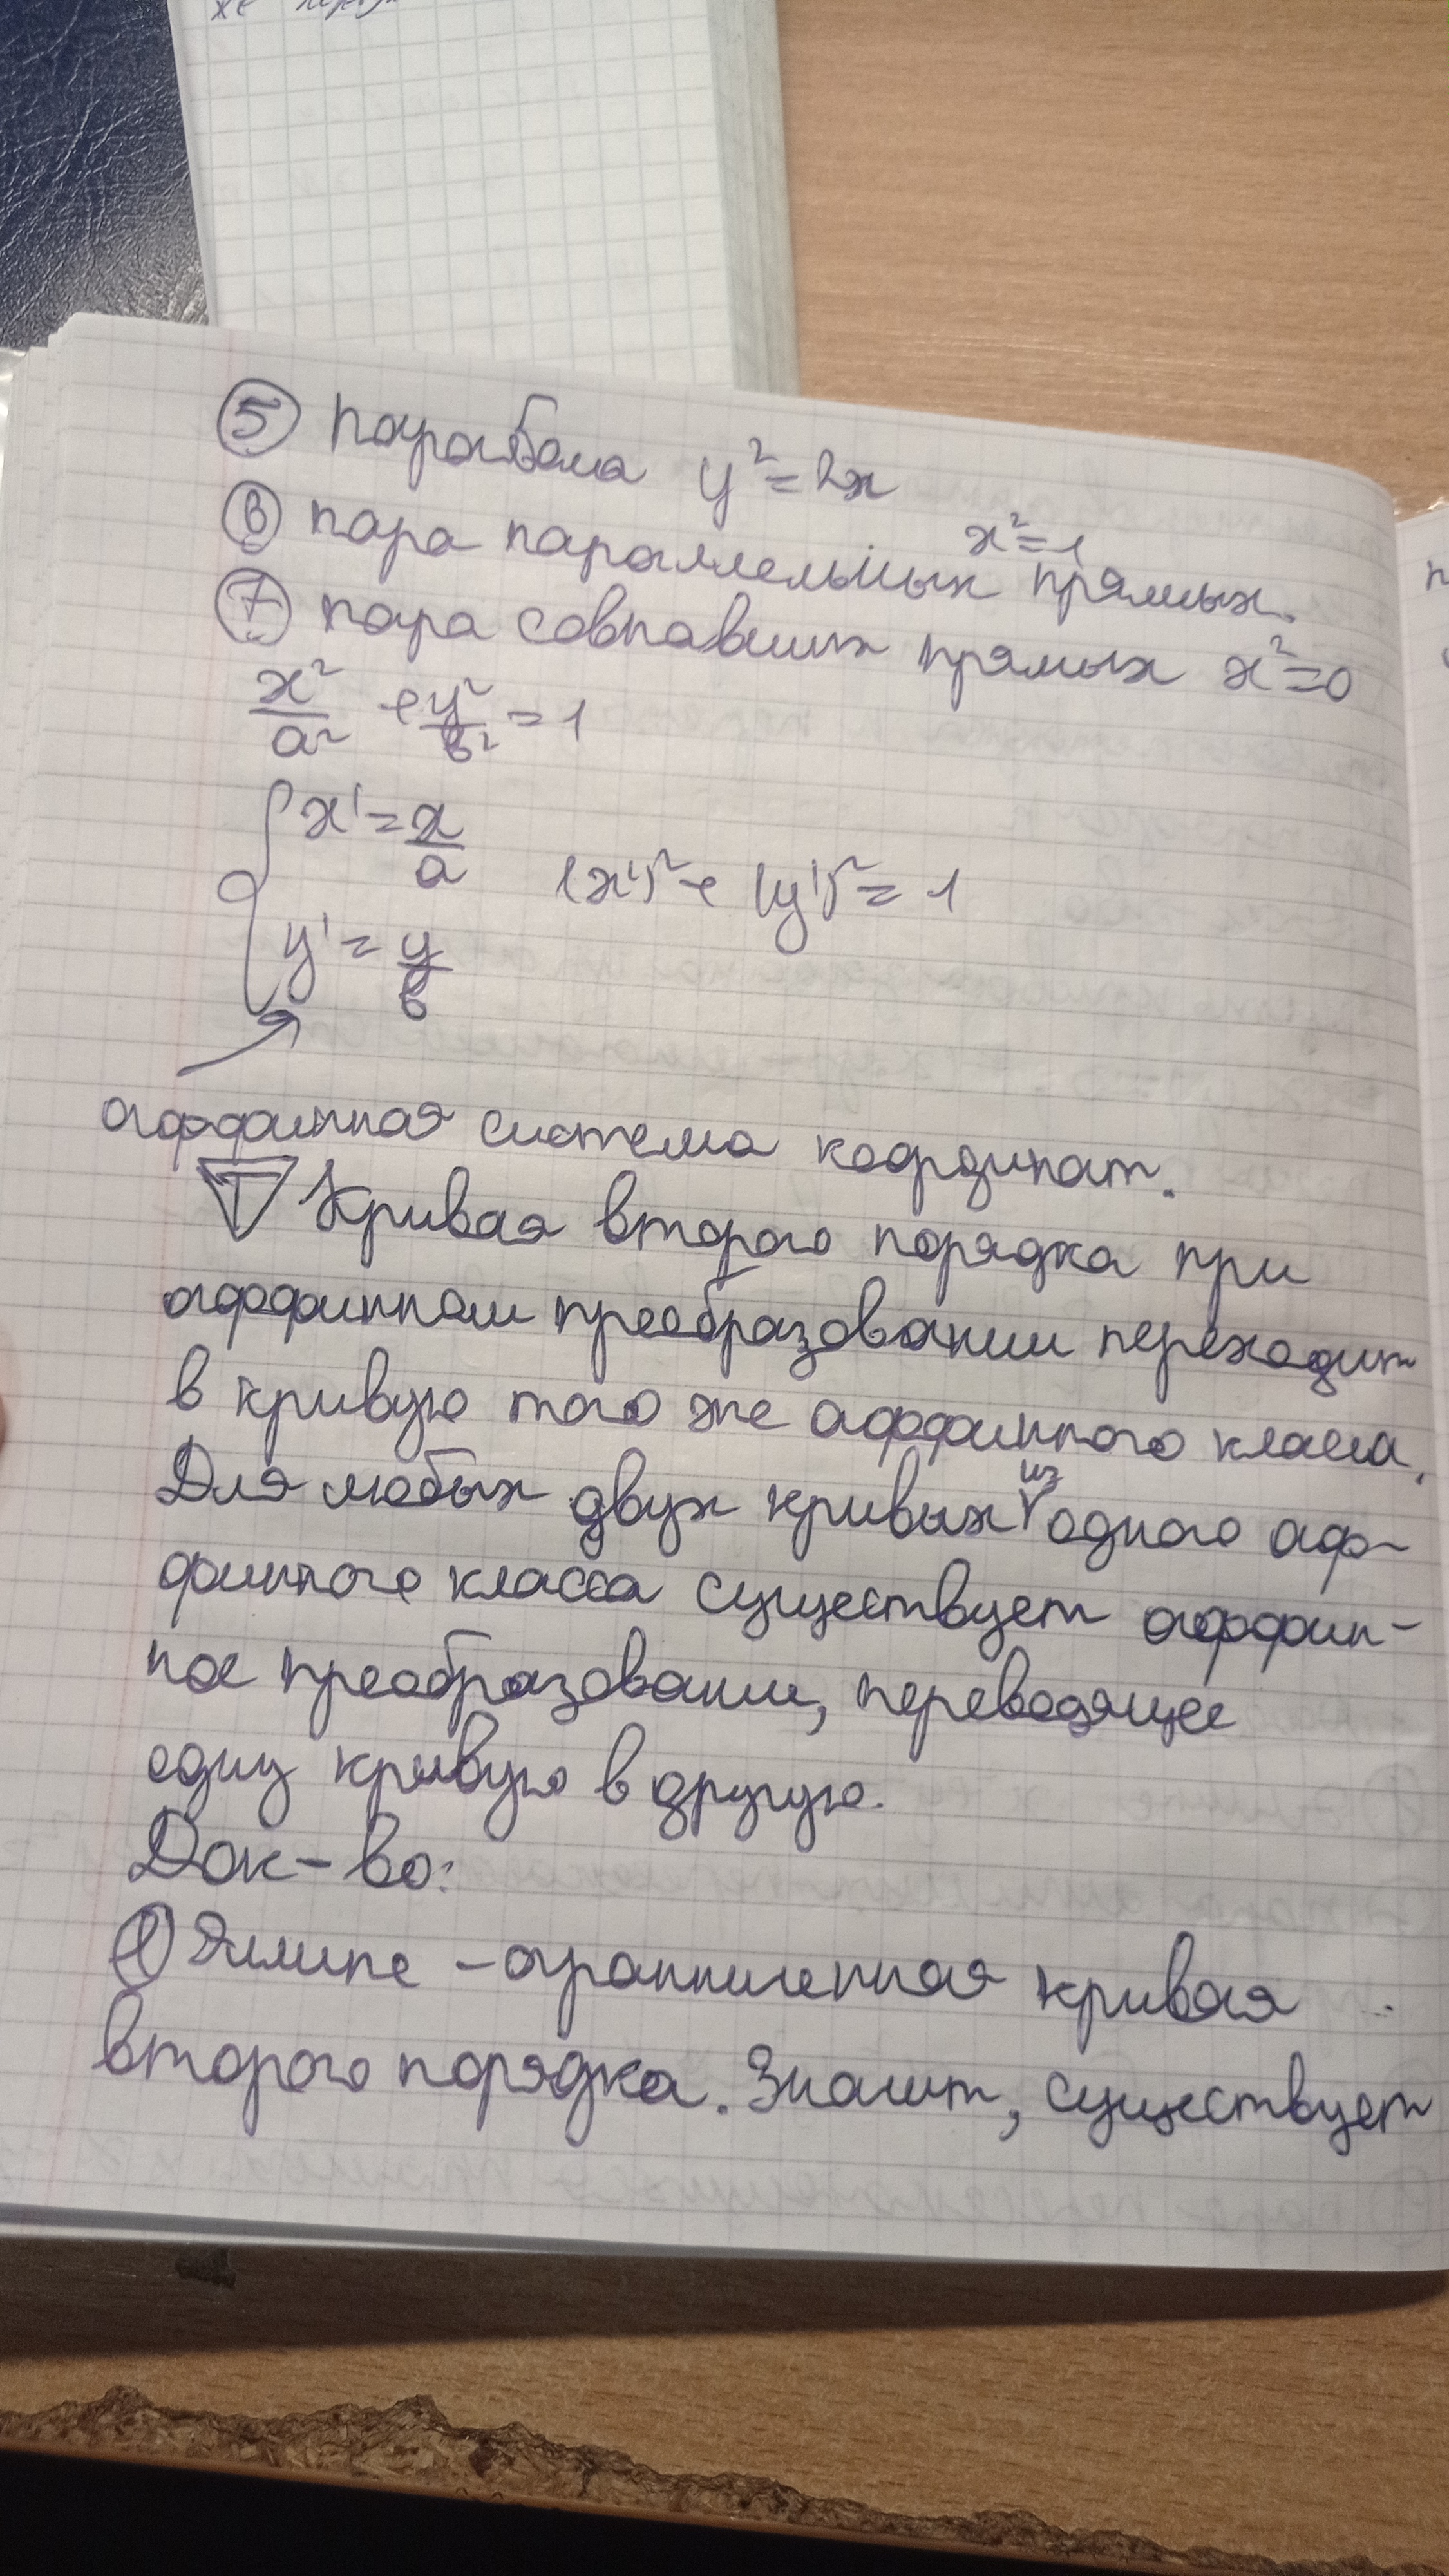 ⑤ парабола y² = 2x
⑥ пара параллельных прямых. x² = 1
⑦ пара совпавших прямых x² = 0
x²/a² + y²/b² = 1
x' = x/a
(x')² + (y')² = 1
y' = y/b
аффинная система координат.
Т Кривая второго порядка при
аффинном преобразовании переходит
в кривую того же аффинного класса.
Для любых двух кривых из одного аф-
финного класса существует аффин-
ное преобразование, переводящее
одну кривую в другую.
Док-во:
① Эллипс – ограниченная кривая
второго порядка. Значит, существует